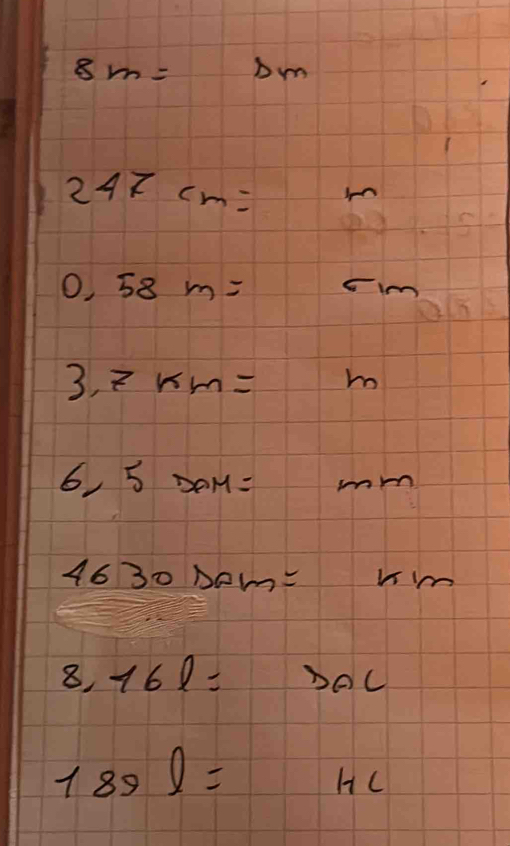 8 m = Dm
247 cm = m
0,58 m = cm
3,7 Km = m
6,5 DAM = mm
4630 DAm = Km
8,16 l = DAL
189 l = HL